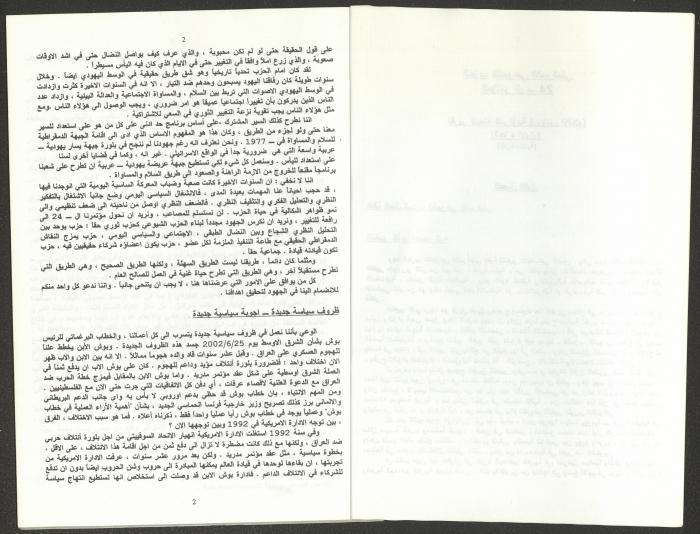 2
على قول الحقيقة حتى لو لم تكن محبوبة ، والذي عرف كيف يواصل النضال حتى في اشد الاوقات
صعوبة ، والذي زرع املاً وافقاً في التغيير حتى في الايام الذي كان فيه اليأس مسيطراً .
لقد كان امام الحزب تحدياً تاريخياً وهو شق طريق حقيقية في الوسط اليهودي ايضاً . وخلال
سنوات طويلة كان رفاقنا اليهود يسبحون وحدهم ضد التيار ، الا انه في السنوات الاخيرة كثرت وازدادت
في الوسط اليهودي الاصوات التي تربط بين السلام ، والمساواة الاجتماعية والعدالة البيئية ، وازداد عدد
الناس الذين يدركون بأن تغييراً اجتماعياً عميقاً هو امر ضروري ، ويجب الوصول الى هؤلاء الناس .ومع
مثل هؤلاء الناس يجب تقوية نزعة التغيير الثوري في السعي للاشتراكية .
اننا نطرح كذلك السير المشترك ،على أساس برنامج حد ادنى على كل من هو على استعداد للسير
معنا حتى ولو لجزء من الطريق ، وكان هذا هو المفهوم الاساس الذي ادى الى اقامة الجبهة الدمقراطية
للسلام والمساواة في – 1977 . ونحن نعترف انه رغم جهودنا لم ننجح في بلورة جبهة يسار يهودية –
عربية واسعة التي هي ضرورية جداً في الواقع الاسرائيلي . غير انه ، وكما في قضايا أخرى لسنا
على استعداد لليأس . وسنعمل كل شيء لكي تستطيع جبهة عريضة يهودية – عربية ان تطرح على شعبنا
برنامجاً مقنعاً للخروج من الازمة الراهنة والصعود الى طريق السلام والمساواة .
اننا لا نخفي : ان السنوات الاخيرة كانت صعبة وضباب المعركة السياسية اليومية التي اوجدنا فيها
، قد حجب احياناً عنا المهمات بعيدة المدى . فالانشغال السياسي اليومي وضع جانباً الانشغال بالتفكير
النظري والتحليل الفكري والتثقيف النظري . فالضعف النظري اوصل من ناحيته الى ضعف تنظيمي والى
نمو ظواهر اشكالية في حياة الحزب . لن نستسلم للمصاعب ، ونريد ان نحول مؤتمرنا ال – 24 الى
رافعة للتغيير ، ونريد ان نكرس الجهود مجدداً لبناء الحزب الشيوعي كحزب ثوري حقاً : حزب يوحد بين
التحليل النظري الشجاع وبين النضال الطبقي ، الاجتماعي والسياسي اليومي ، حزب يمزج النقاش
الدمقراطي الحقيقي مع طاعة التنفيذ الملزمة لكل عضو ، حزب يكون اعضاؤه شركاء حقيقيين فيه ، حزب
تكون قيادته قيادة . جماعية حقاً .
ومثلما كان دائماً ، طريقنا ليست الطريق السهلة ، ولكنها الطريق الصحيح ، وهي الطريق التي
تطرح مستقبلاً آخر ، وهي الطريق التي تطرح حياة غنية في العمل للصالح العام .
كل من يوافق على الامور التي عرضناها هنا ، لا يجب ان يتنحى جانباً . واننا ندعو كل واحد منكم
للانضمام الينا في الجهود لتحقيق اهدافنا .
ظروف سياسة جديدة – اجوبة سياسية جديدة
الوعي بأننا نعمل في ظروف سياسية جديدة يتسرب الى كل أعمالنا ، والخطاب البرغماتي للرئيس
بوش بشأن الشرق الاوسط يوم 2002/6/25 جسد هذه الظروف الجديدة . وبوش الأبن يخطط علناً
للهجوم العسكري على العراق ، وقبل عشر سنوات قاد والده هجوماً مماثلاً . الا انه بين الابن والاب ظهر
الان اختلاف واحد : فلضرورة بلورة أئتلاف مؤيد وداعم للهجوم ، كان على بوش الاب ان يدفع ثمناً في
العملة الشرق اوسطية على شكل عقد مؤتمر مدريد . واما بوش الابن بالمقابل فيمزج خطة الحرب ضد
العراق مع الدعوة العلنية لاقصاء عرفات ، أي دفن كل الاتفاقيات التي جرت حتى الان مع الفلسطينيين .
ومن المهم الانتباه ، بان خطاب بوش قد حظي بدعم اوروبي لا بأس به واى جانب الدعم البريطاني
والالماني برز كذلك تصريح وزير خارجية فرنسا الحماسي الجديد ، بشأن "أهمية الآراء العملية في خطاب
بوش" وعملياً يوجد في خطاب بوش رأيا عملياً واحداً فقط ، ذكرناه أعلاه . فما هو سبب الاختلاف ، الفرق
، بين توجه الادارة الامريكية في 1992 وبين توجهها الان ؟
وفي سنة 1992 استغلت الادارة الامريكية انهيار الاتحاد السوفييتي من اجل بلورة أئتلاف حربي
ضد العراق ، ولكنها مع ذلك كانت مضطرة لا تزال الى دفع ثمن من اجل اقامة هذا الائتلاف ، على الاقل ،
بخطوة سياسية ، مثل عقد مؤتمر مدريد . ولكن بعد مرور عشر سنوات ، عرفت الادارة الامريكية من
تجربتها ، ان بقاءها لوحدها في قيادة العالم يمكنها المبادرة الى حروب وشن الحروب ايضاً بدون ان تدفع
للشركاء في الائتلاف الداعم . فادارة بوش الابن قد وصلت الى استخلاص انها تستطيع انتهاج سياسة
2